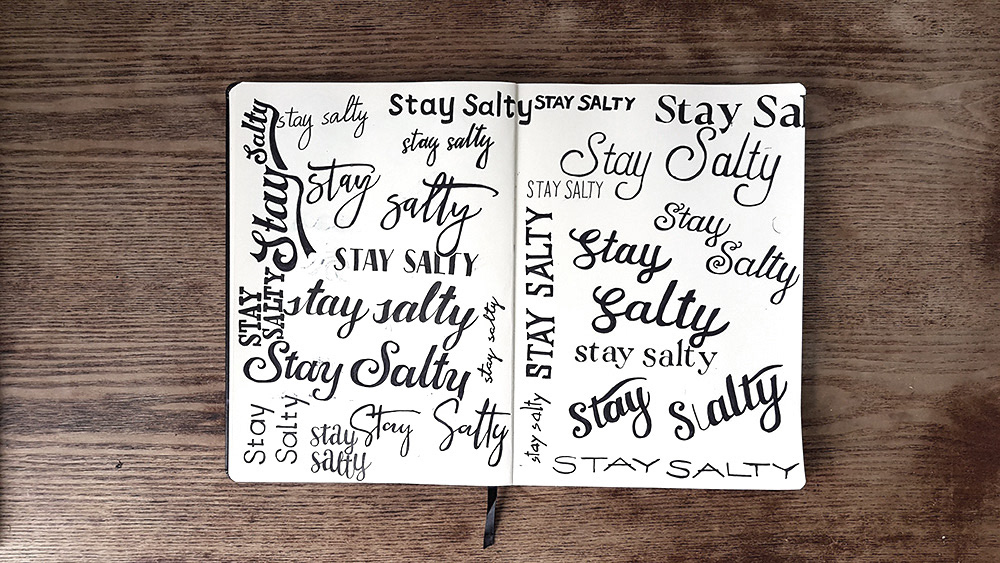 Stay Salty
stay salty
Stay Salty
stay salty
stay salty
STAY SALTY
stay salty
STAY
SALTY
stay salty
Stay Salty
Stay
Salty
stay
salty
Stay Salty
STAY SALTY
Stay Sal
Stay Salty
STAY SALTY
Stay
Salty
STAY SALTY
Stay
Salty
stay salty
stay salty
Stay Salty
STAY SALTY